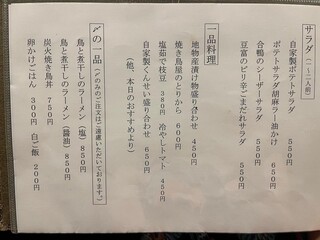 サラダ(一~二人前)
自家製ポテトサラダ 550円
ポテトサラダ胡麻ラー油かけ 650円
合鴨のシーザーサラダ 550円
豆富のピリ辛ごまだれサラダ 550円
一品料理
地物産漬け物盛り合わせ 450円
焼き鳥屋のとりから 600円
塩茹で枝豆 380円 冷やしトマト 450円
自家製くんせい盛り合わせ 650円
(他、本日のおすすめより)
〆の一品(〆のみのご注文はご遠慮いただいております。)
鳥と煮干しのラーメン(塩) 850円
鳥と煮干しのラーメン(醤油) 850円
炭火焼き鳥丼 750円
卵かけごはん 300円 白ご飯 200円